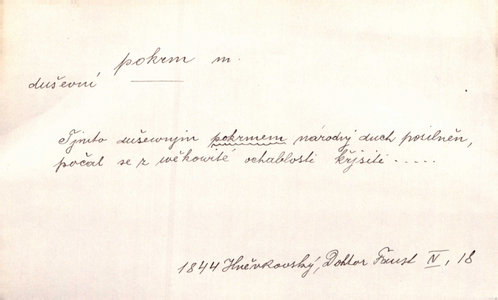 pokrm m.
duševní
Tjmto dušewnjm pokrmem národnj duch posilněn,
počal se z wěkowité ochablosti křjsiti.....
1844 Hněvkovský, Doktor Faust IV, 18